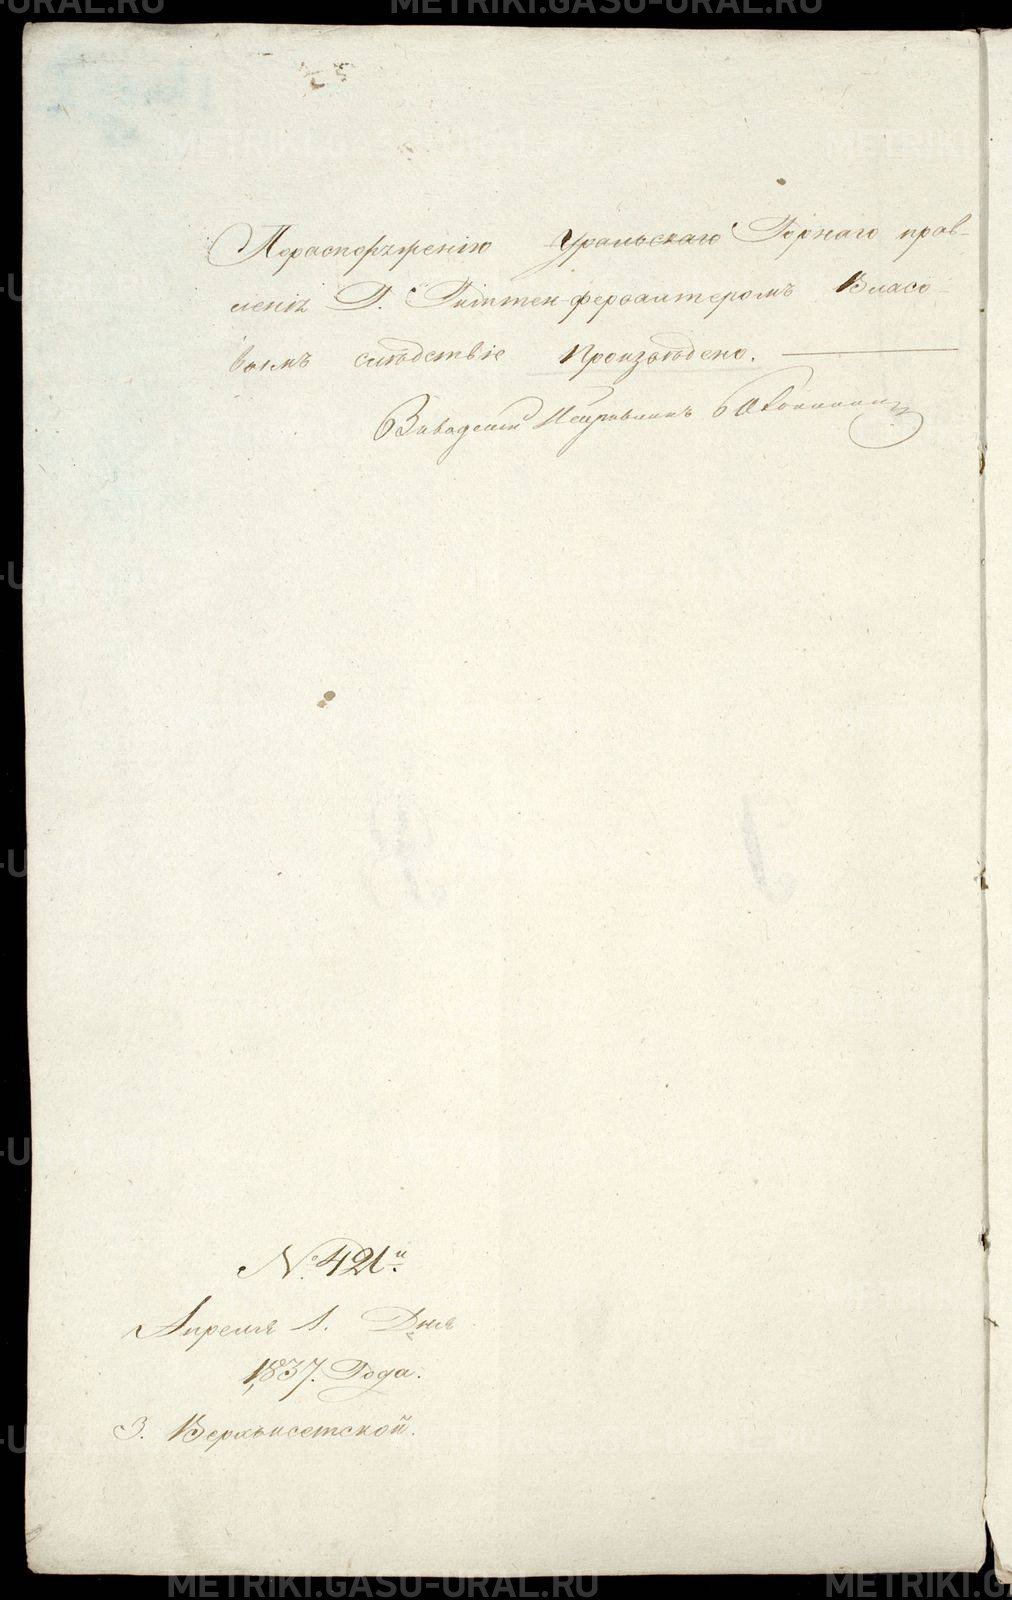 METRIKI.GASU-URAL.RU
Пораспоряженію Уральскаго Горнаго прав-
ленія Г. Гиттен-фервалтеромъ Власо
вымъ слѣдствіе Произведено. —
Заводскій Исправникъ
№. 421.й
Апреля 1. Дня
1837. Года.
З. Верхъисетской.
METRIKI.GASU-URAL.RU